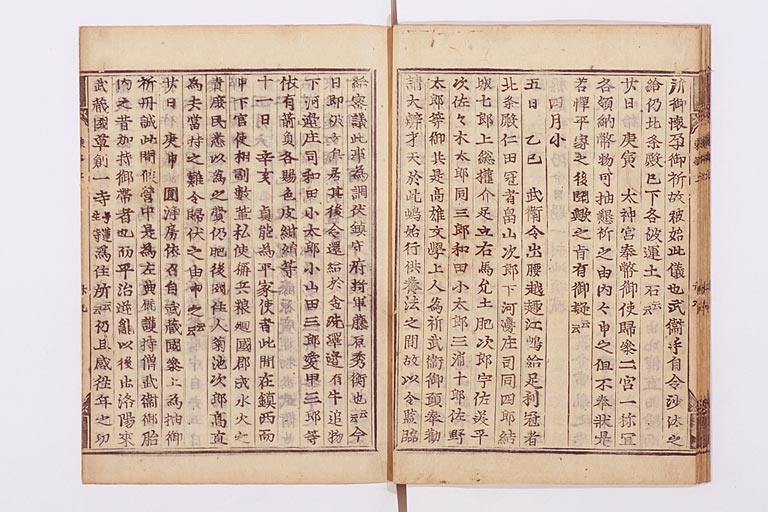 所御懐孕御祈故被始此儀也武衛手自令沙汰之
給仍北条殿已下各被運土石云々
廿日 庚寅 太神宮奉幣御使歸參二宮一祢宜
各領納幣物可抽懇祈之由内々申之但不奉状是
若憚平家後聞歟之旨有御疑云々
四月小
五日 乙巳 武衛令出腰越邊江嶋給足利冠者
北条殿仁田冠者畠山次郎下河邊庄司同四郎結
城七郎上総權介足立右馬允土肥次郎宇佐美平
次佐々木太郎同三郎和田小太郎三浦十郎佐野
太郎等御共是高雄文學上人為祈武衛御願奉勸
請大辨才天於此嶋始行供養法之間故以令監臨
給密議此事為調伏鎮守府將軍藤原秀衡也云々今
日即被立鳥居其後令還給於金洗澤邊有牛追物
下河邊庄司和田小太郎小山田三郎愛甲三郎等
依有箭員各賜色皮紺絹等
十一日 辛亥 貞能為平家使者此間在鎮西而
申下官使相副數輩私使稱兵粮廻國郡成水火之
責庶民悉以為之費仍肥後國住人菊池次郎高直
為去當時之難令歸伏之由申之云々
廿日 庚申 圓浄房依召自武藏國參上為抽御
祈丹誠此間候營中是為左典厩護持僧武衛御胎
内之昔加持御帶者也而平治逆亂以後出洛陽來
武藏國草創一寺為住所云々仍且感往年之功